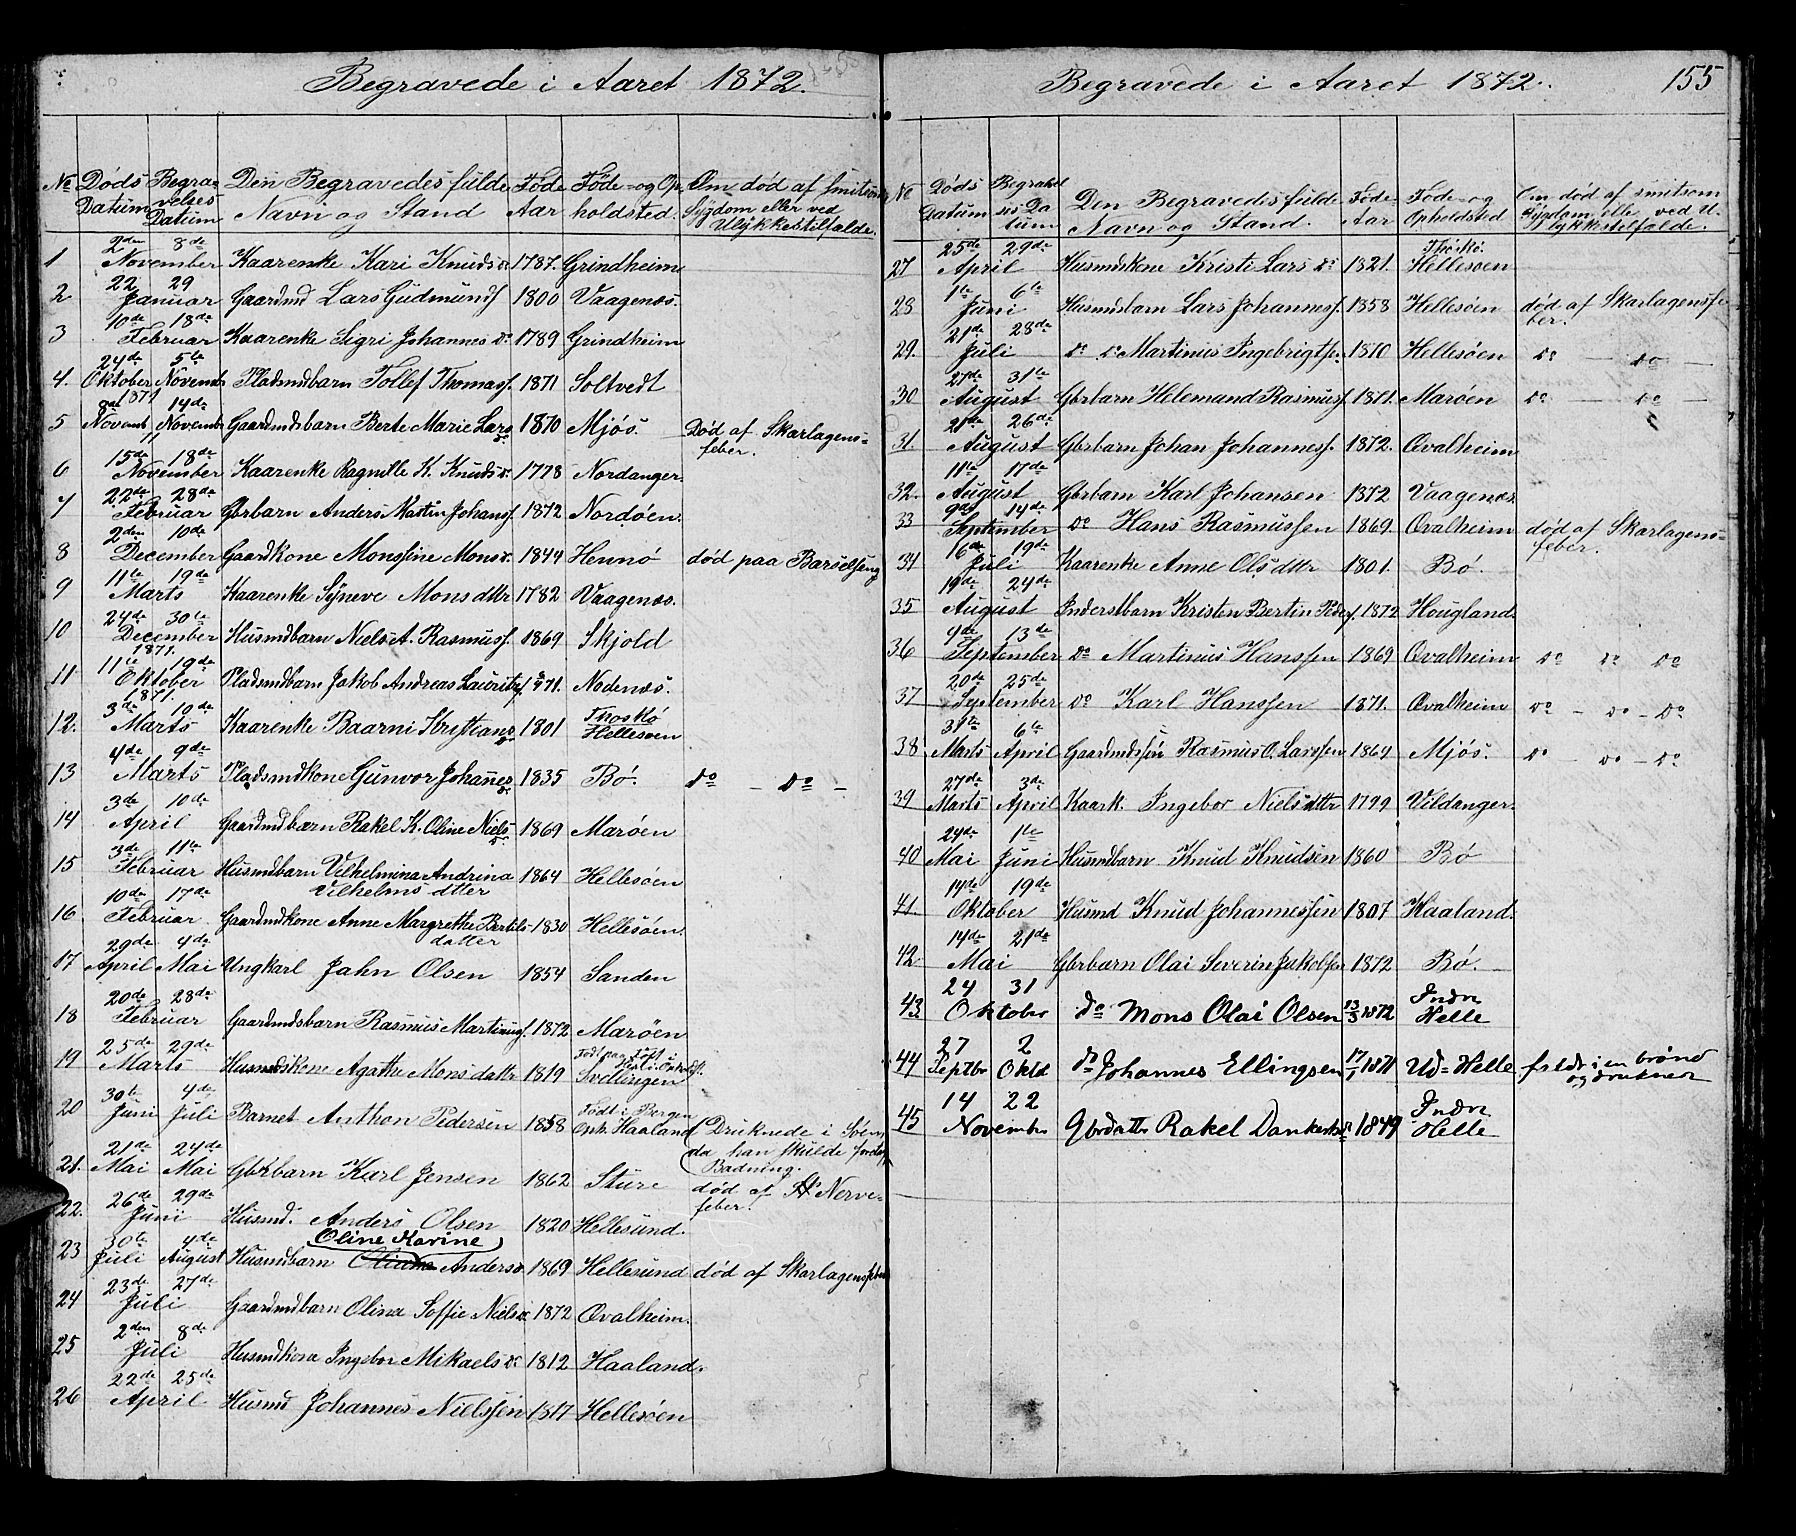 Begravede i Aaret 1872.
№ Døds Datum Begravelses Datum Den Begravedes fulde Navn og Stand Føde Aar Føde- og Opholdsted. Om død af smitsom Sygdom eller ved Ulykkestilfælde.
1 2den November 8de Kaarenke Kari Knudsdr 1787. Grindheim
2 22 Januar 29 Gaardmd Lars Gudmunds. 1800 Vaagenæs.
3 10de Februar 18de Kaarenke Sigri Johannesdr 1789 Grindheim
4. 24de Oktober 1871 5te Novemb Pladsmdbarn Tollef Thomass. 1871 Soltvedt
5 Novemb 14de Novemb Gaardmdsbarn Berte Marie Larsdr 1870 Mjøs. Død af Skarlagens=
feber.
6 15de November 18de Kaarenke Ragnille K. Knudsdr. 1778 Nordanger.
7 22de Februar 28de Gbrbarn Anders Martin Johans. 1872 Nordøen.
8 2den December 10de Gaardkone Monssine Monsdr. 1844 Hennø død paa Barselseng
9 11te Marts 19de Kaarenke Syneve Monsdttr 1782 Vaagenæs.
10 24de December 1871. 30te Husmdbarn Niels A. Rasmuss. 1869 Skjold
11 11te Oktober 1871. 19de Pladsmdbarn Jakob Andreas Lauritz. 1871. Nodenæs.
12. 3de Marts 19de Kaarenke Baarni Kristiansdr 1801 Thoskø Hellesøen
13 4de Marts 9de Pladsmdkone Gunvor Johannesdr 1835 Bø. do – do –
14 3de April 10de Gaardmdbarn Rakel K. Oline Nielsdr 1869 Marøen
15 3de Februar 11te Husmdbarn Vilhelmina Andrina
Vilhelms dtter 1864 Hellesøen
16 10de Februar 17de Gaardmdkone Anne Margrethe Bertels-
datter 1830 Hellesøen.
17 29de April 4de Mai Ungkarl Jahn Olsen 1854 Sanden
18 20de Februar 28de Gaardmdsbarn Rasmus Martinus. 1872 Marøen
19 25de Marts 29de Husmdskone Agathe Monsdattr 1819 Svellingen
20 30te Juni 4de Juli Barnet Anthon Pedersen 1858 Født i Bergen
Oph. Haaland Druknede i Søen,
da han skulde foretag
Badning.
21. 21de Mai 24de Mai Gbrbarn Karl Jensen 1862 Sture død af Nerve=
feber.
22. 26de Juni 29de Husmd. Anders Olsen 1820 Hellesund.
Oline Karine
23 30te Juli 4de August Husmdbarn Andersdr 1869 Hellesund død af Skarlagensfeber
24 23de Juli 27de Gaardmdbarn Olina Soffie Nielsdr. 1872 Øvalheim.
25 2den Juli 8de Husmdkona Ingebor Mikaelsdr 1812 Haaland.
26 22de April 25de Husmd Johannes Nielssen 1817 Hellesøen
Begravede i Aaret 1872. 155
№ Døds Datum Begravelsesdatum Den Begravedes fulde Navn og Stand. Føde-Aar Føde- og Opholdsted Om død af smitsom Sygdom elle ved Ulykkestilfælde.
27 25de April 29de Husmdskone Kristi Larsdr 1821. Thoskø. Hellesøen
28 1te Juni 6te Husmdsbarn Lars Johanness. 1858 Hellesøen død af Skarlagensfe-
ber.
29. 21de Juli 28de do do Martinus Ingebrigtsen 1870 Hellesøen do – do –
30 27de August 31te Gbrbarn Helemand Rasmuss 1871. Marøen do – do –
31. 21de August 26de Gbrbarn Johan Johanness. 1872. Øvalheim
32. 11te August 17de Gbrbarn Karl Johansen 1872 Vaagenæs
33 9de September 14de do Hans Rasmussen 1869. Øvalheim død af Skarlagens-
feber.
34 16de Juli 19de Kaarenke Anne Olsdttr 1801. Bø.
35 19de August 24de Inderstbarn Kristen Bertin Peders. 1872 Hougland.
36 4de September 13de do Martinus Hanssen 1869 Øvalheim do do do
37 20de September 25de do Karl Hanssen 1871. Øvalheim do – do – do
38 31te Marts 6te April Gaardmdssøn Rasmus O. Larssen 1864 Mjøs. do – do – do
39 27de Marts 3de April Kaark. Ingebor Nielsdttr 1799 Vildanger.
40 24de Mai 1te Juni Husmdbarn Knud Knudsen 1860 Bø
41. 14de Oktober 19de Husmd Knud Johannessen 1807 Haaland.
42. 14de Mai 21de Gbrbarn Olai Severin Jakobsen 1872 Bø.
43 24 Oktobr 31 do Mons Olai Olsen 13/3 1872 Indre Helle
44 27 Septbr 2 Oktbr do Johannes Ellingsen 17/1 1871 Ud=Helle faldt i en brønd
og druknede
45 14 November 22 Gbrdattr Rakel Dankertsdr 1849 Indre Helle